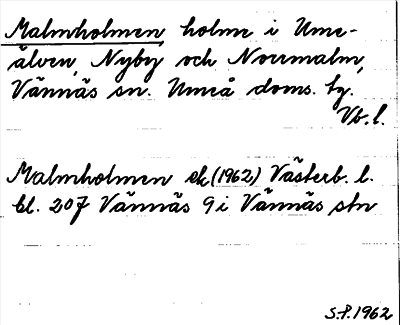 Malmholmen, holme i Ume-
älven, Nyby och Norrmalm,
Vännäs sn. Umeå doms. hg.
Vb. l.
Malmholmen ek (1962) Västerb. l.
bl. 207 Vännäs 9 i Vännäs stn
S.P. 1962